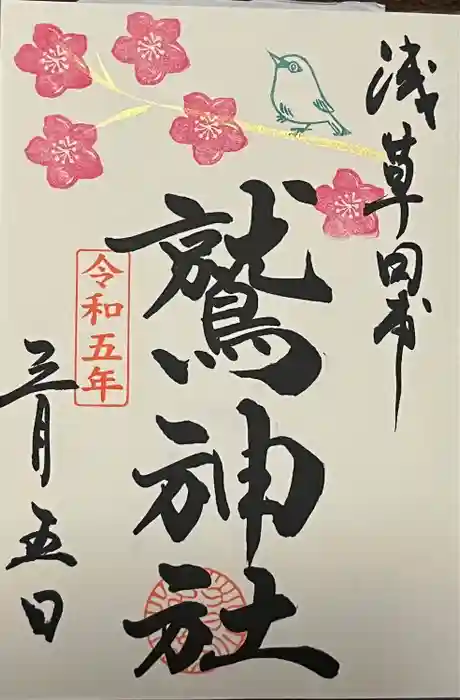 浅草田圃
鷲神社
令和五年
三月五日